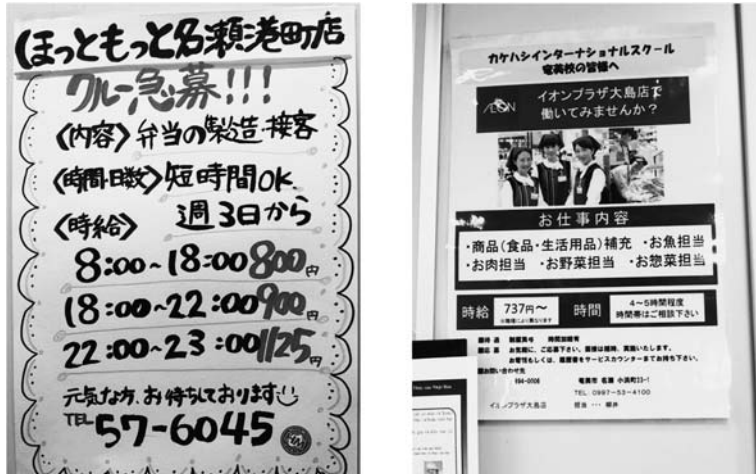 ほっともっと名瀬港町店
クルー急募!!!
〈内容〉弁当の製造・接客
〈時間・日数〉短時間OK.
週3日から
〈時給〉
8:00~18:00 800円
18:00~22:00 900円
22:00~23:00 1125円
元気な方、お待ちしております
TEL 57-6045
カケハシインターナショナルスクール
奄美校の皆様へ
イオンプラザ大島店で
働いてみませんか?
お仕事内容
・商品(食品・生活用品)補充 ・お魚担当
・お肉担当 ・お野菜担当 ・お惣菜担当
時給 737円~
時間 4~5時間程度
時間帯はご相談下さい
お気軽に、ご応募下さい。面接は随時、実施いたします。
お電話もしくは、履歴書をサービスカウンターまでお持ち下さい。
894-0008 奄美市 名瀬 小浜町23-1
TEL: 0997-53-4100
イオンプラザ大島店 担当 ・・・ 柳井